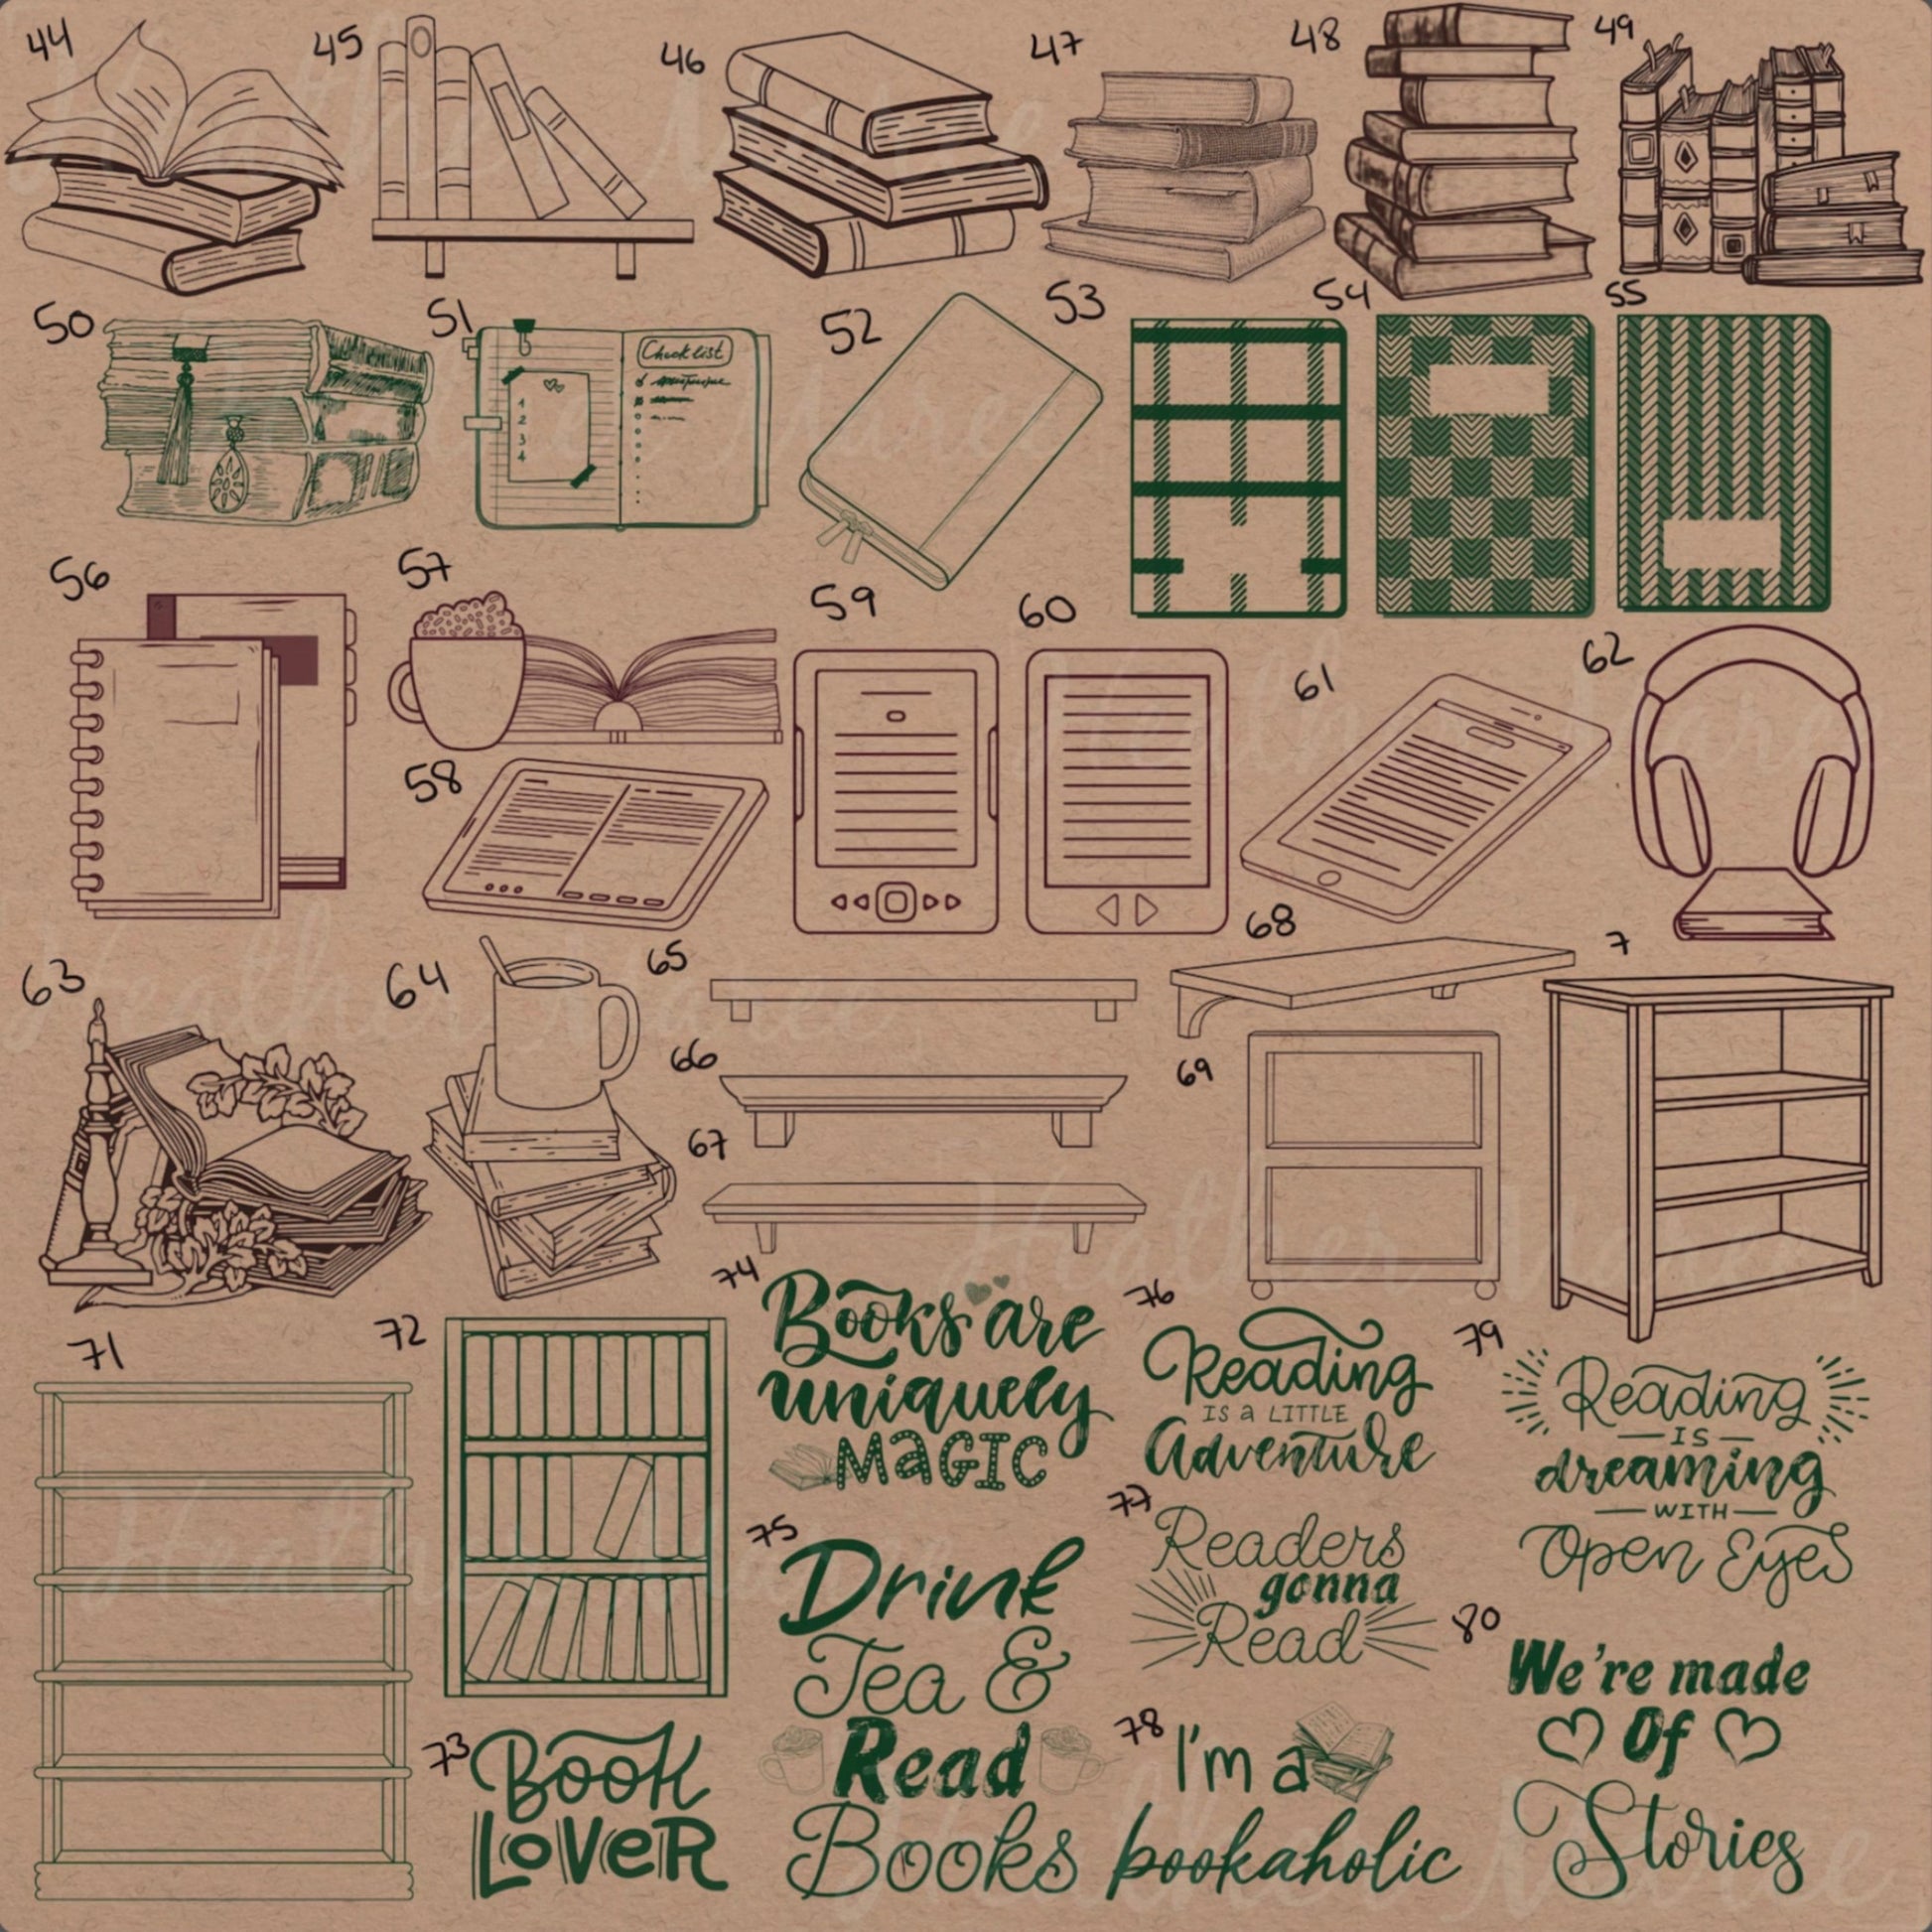 44
45
46
47
48
49
50
51
Check list
1
2
3
4
52
53
54
55
56
57
58
59
60
61
62
63
64
65
66
67
68
69
7
71
72
73
Book
LOVER
74
Books are
uniquely
MAGIC
75
Drink
Tea &
Read
Books
76
Reading
IS a LITTLE
Adventure
77
Readers
gonna
Read
78
I'm a
bookaholic
79
Reading
IS
dreaming
WITH
Open Eyes
80
We're made
Of
Stories
Heather Maree